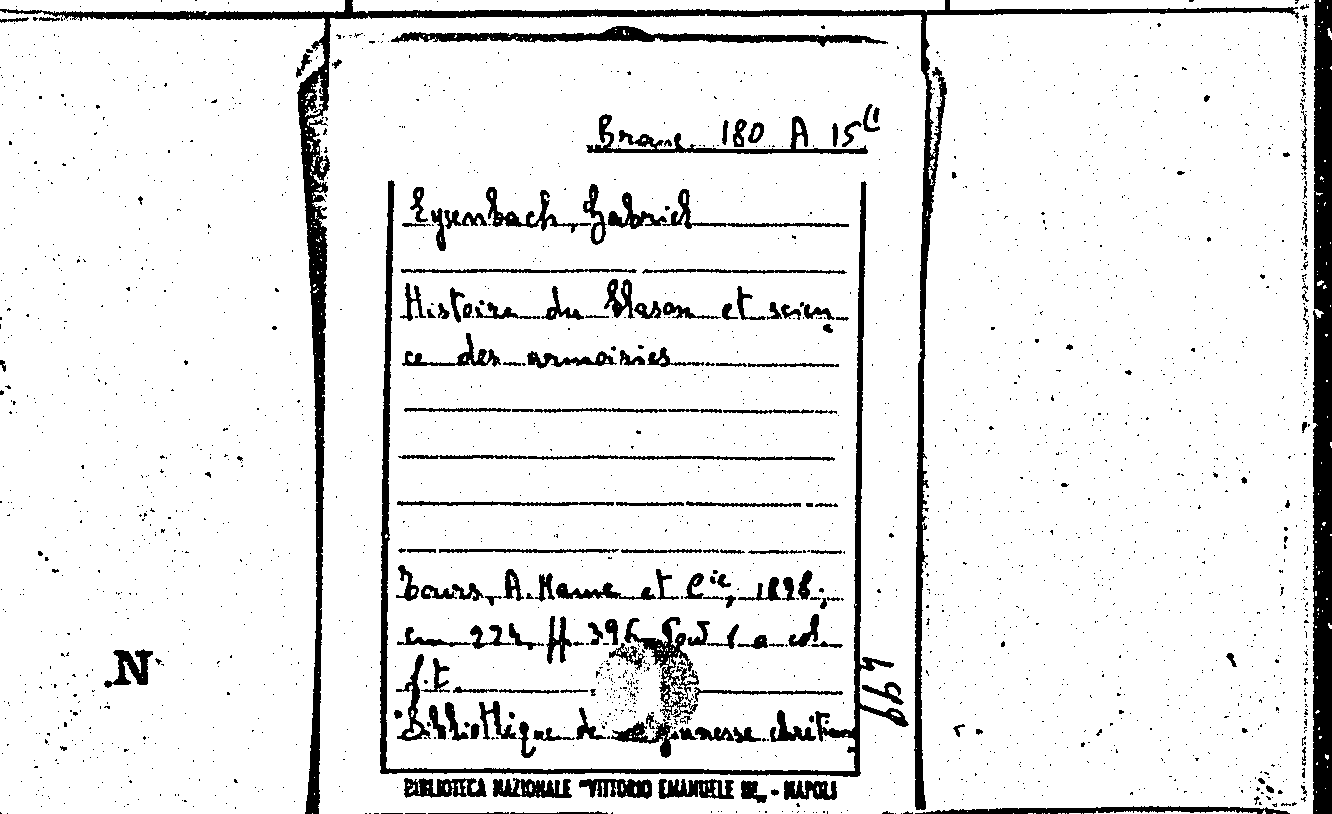 Branc. 180 A 15(1
Eysenbach, Gabriel
Histoire du blason et scien
ce des armoiries
Tours, A. Mame et Cie, 1898;
cm 22½, pp 396 1 a col.
f.t.
Bibliothèque de jeunesse chrétienne
BIBLIOTECA NAZIONALE "VITTORIO EMANUELE III" - NAPOLI
699
N